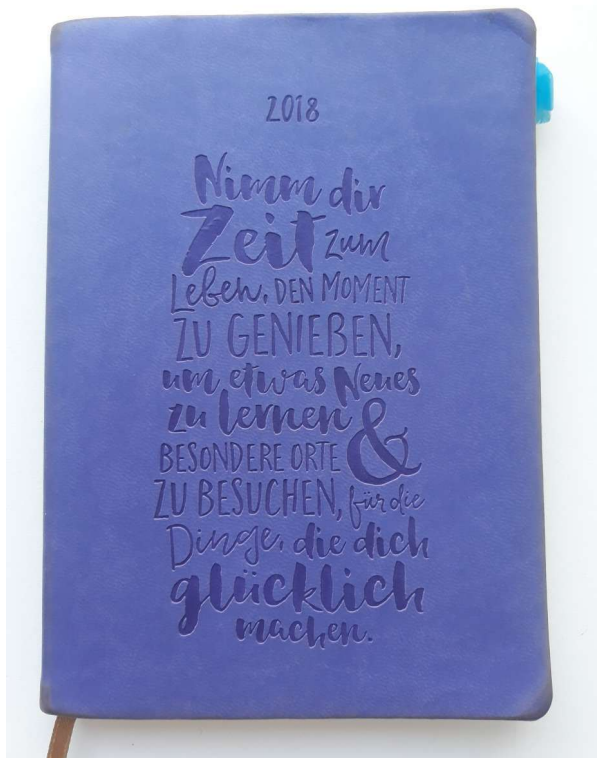 2018
Nimm dir
Zeit zum
Leben, DEN MOMENT
ZU GENIEßEN,
um etwas Neues
zu lernen &
BESONDERE ORTE
ZU BESUCHEN, für die
Dinge, die dich
glücklich
machen.